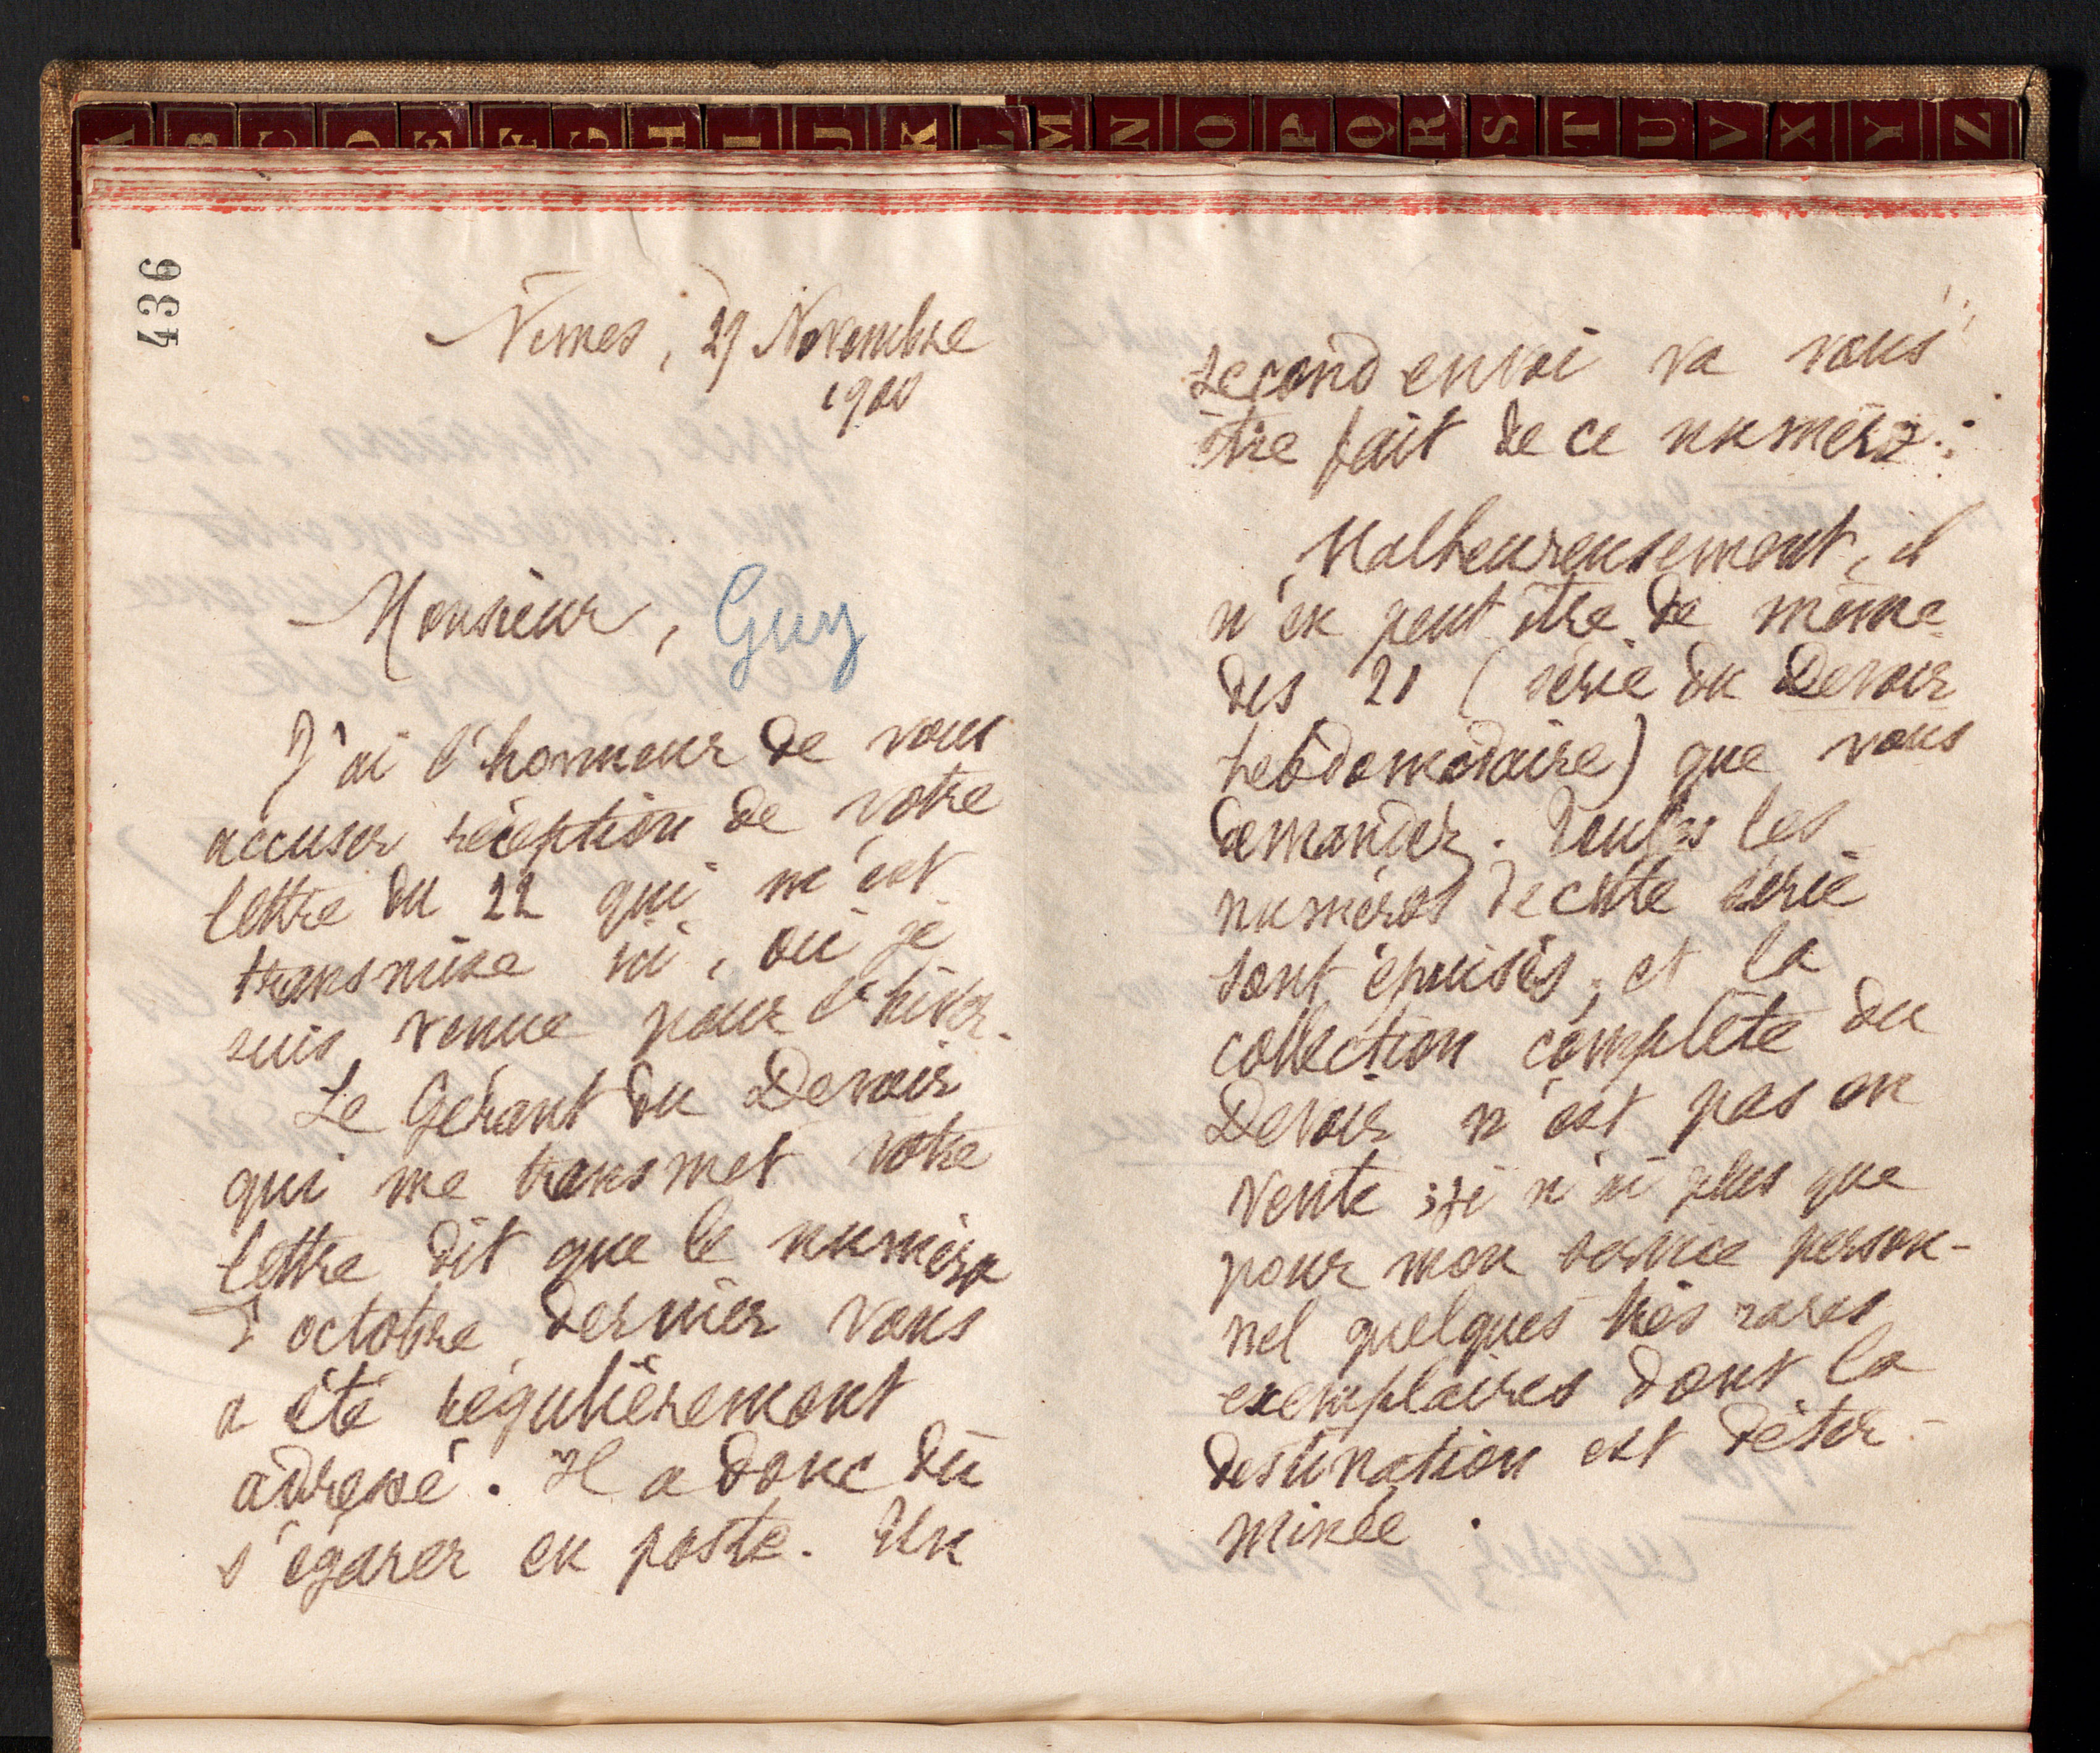 A B C D E F G H I J K L M N O P Q R S T U V X Y Z
436
Nîmes, 29 Novembre
1900
Monsieur, Guy
J'ai l'honneur de vous
accuser réception de votre
lettre du 22 qui m'est
transmise ici, où je
suis venue pour l'hiver.
Le Gérant du Devoir
qui me transmet votre
lettre dit que le numéro
d'octobre dernier vous
a été régulièrement
adressé. Il a donc dû
s'égarer en poste. Un
second envoi va vous
être fait de ce numéro.
Malheureusement, il
n'en peut être de même
des 21 (série du Devoir
hebdomadaire) que vous
demandez. Toutes les
numéros de cette série
sont épuisés; et la
collection complète du
Devoir n'est pas en
vente; je n'ai plus que
pour mon service person-
nel quelques très rares
exemplaires dont la
destination est déter-
minée.